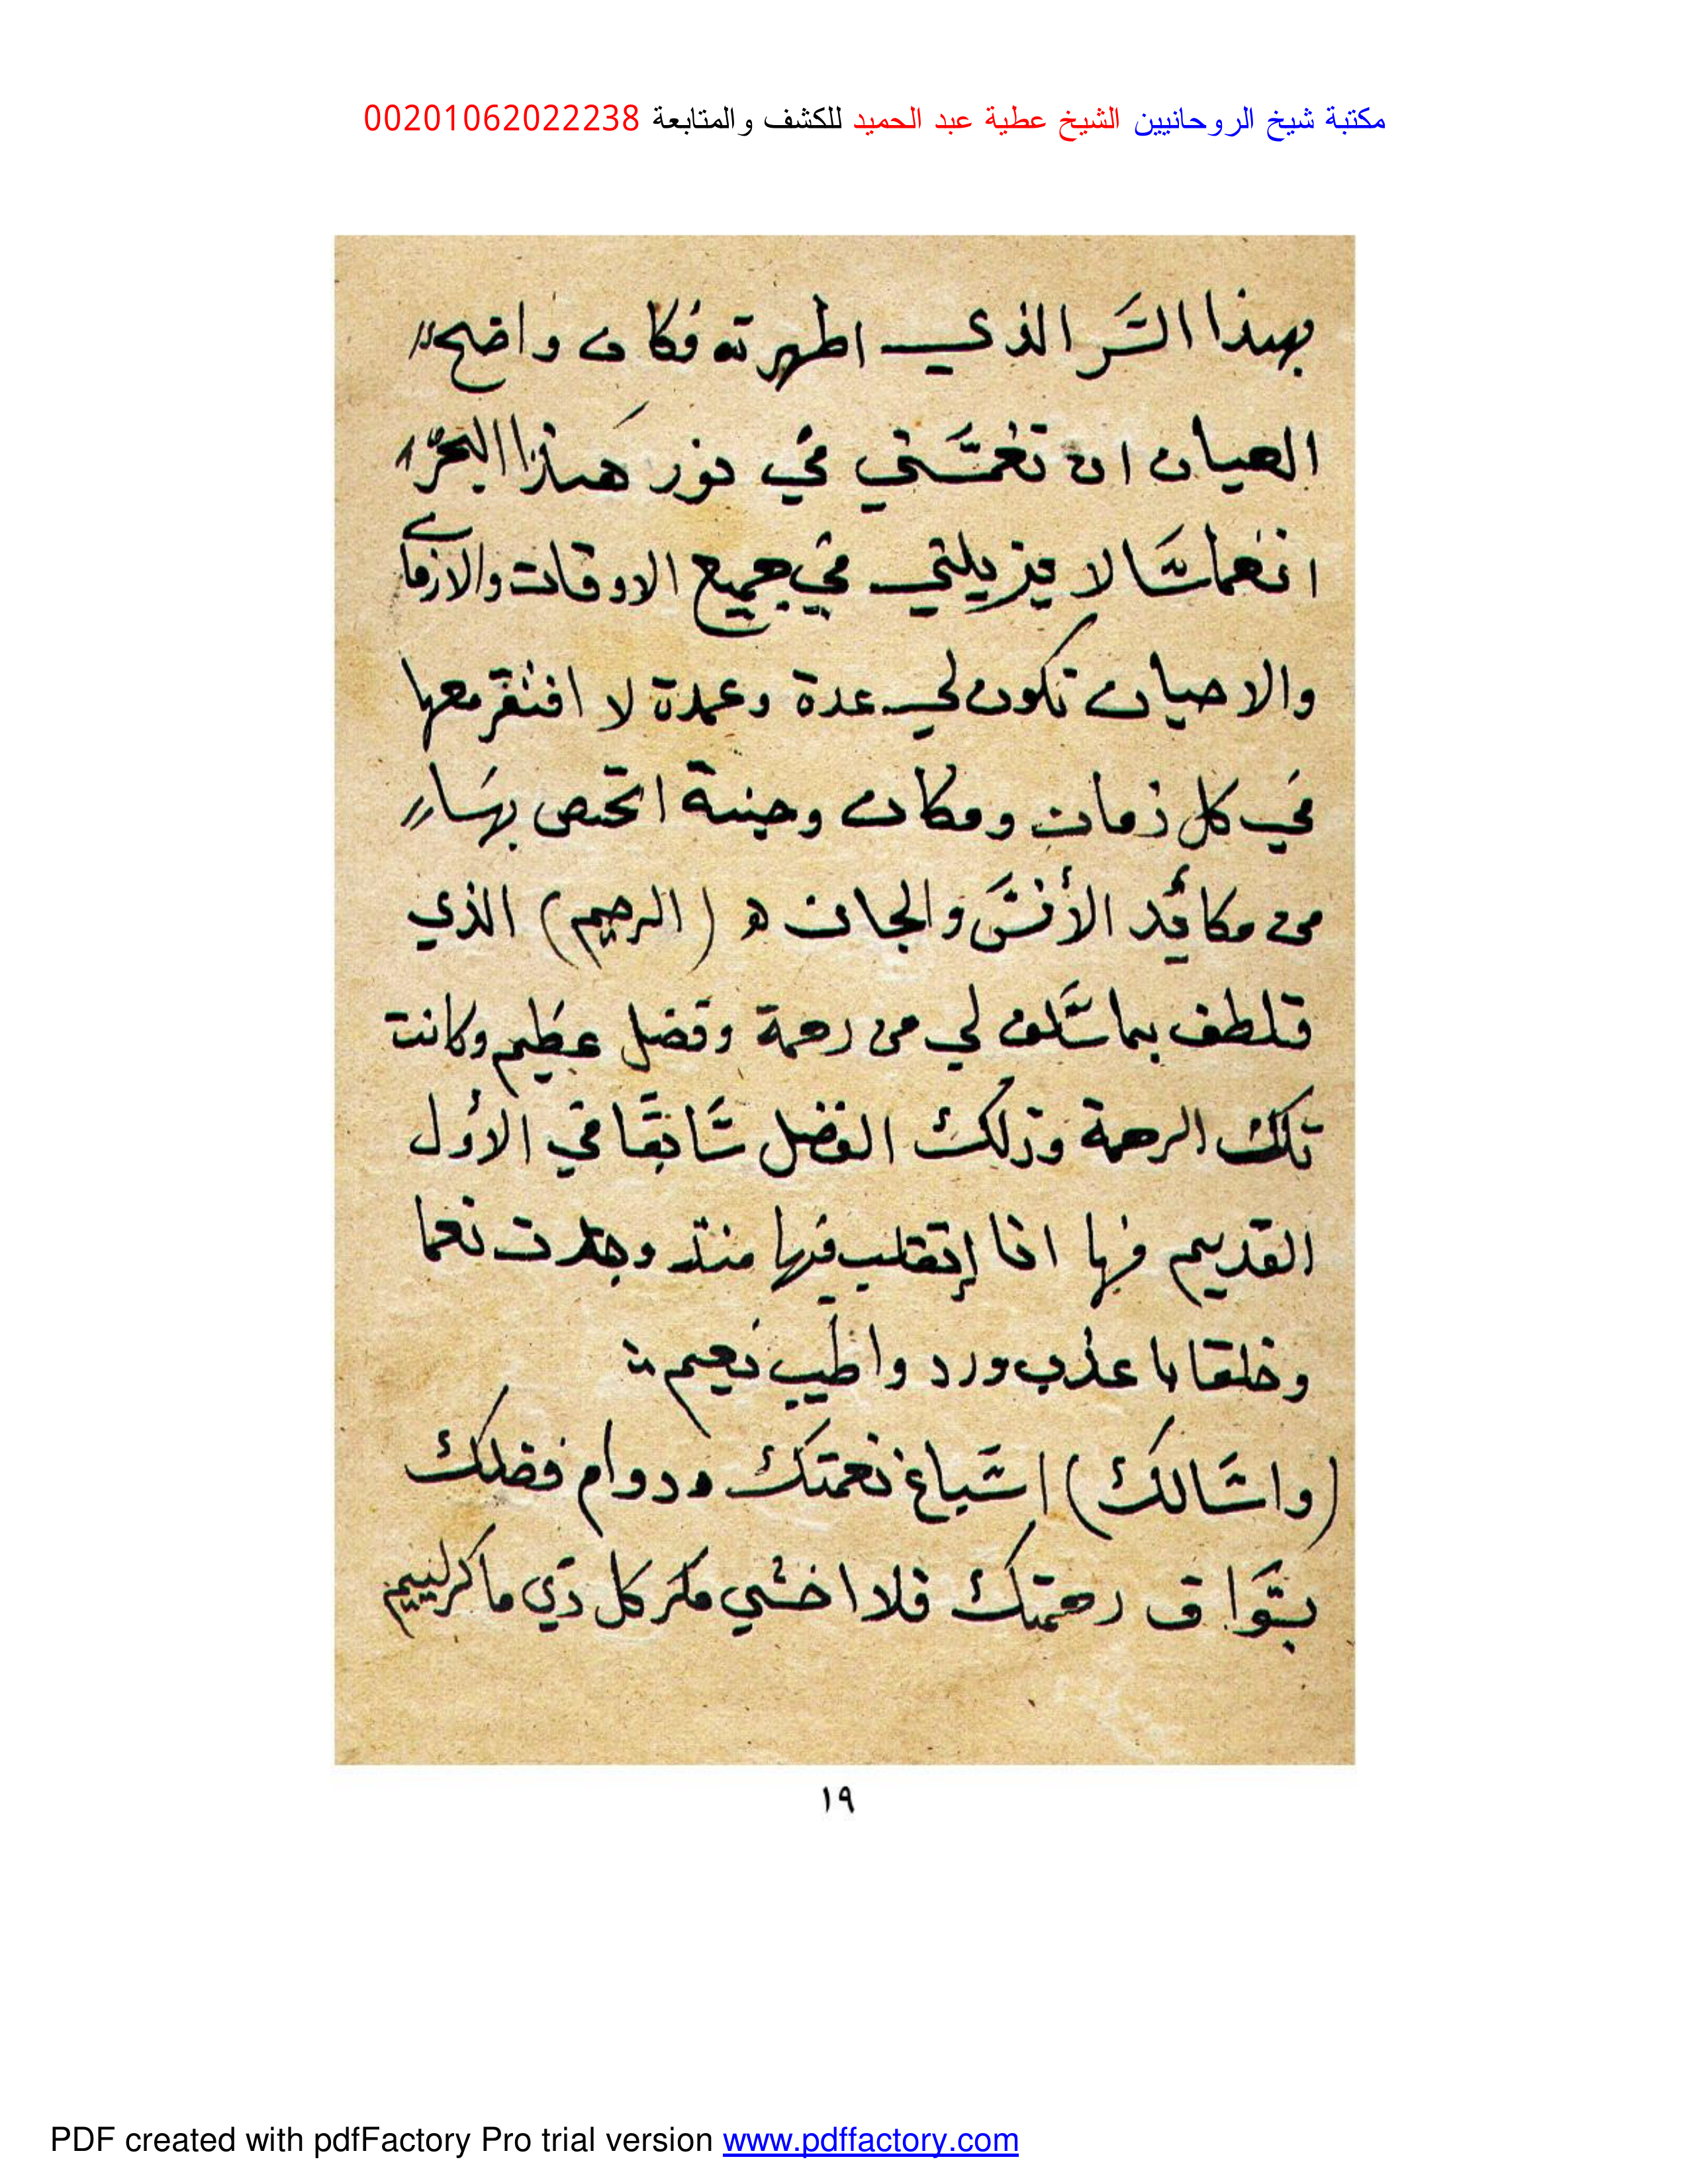 مكتبة شيخ الروحانيين الشيخ عطية عبد الحميد للكشف والمتابعة 00201062022238
بهذا السر الذي اظهرته فكان واضح
العيان ان تغمسني في نور هذا البحر
انغماسا لا يزيلني في جميع الاوقات والازمان
والاحيان تكون لي عدة وعمدة لا افتقر معها
في كل زمان ومكان وجنة اتحصن بها
من مكائد الأنس والجان ه (الرحيم) الذي
تلطف بما سلف لي من رحمة وفضل عظيم وكانت
تلك الرحمة وذلك الفضل سابقا في الأول
القديم فها انا إتقلب فيها منذ وجدت نعما
وخلقا يا عذب ورد واطيب نعيم
(واسالك) اسباغ نعمتك ودوام فضلك
بسوابق رحمتك فلا اخشي مكر كل ذي ماكر لييم
١٩
PDF created with pdfFactory Pro trial version www.pdffactory.com